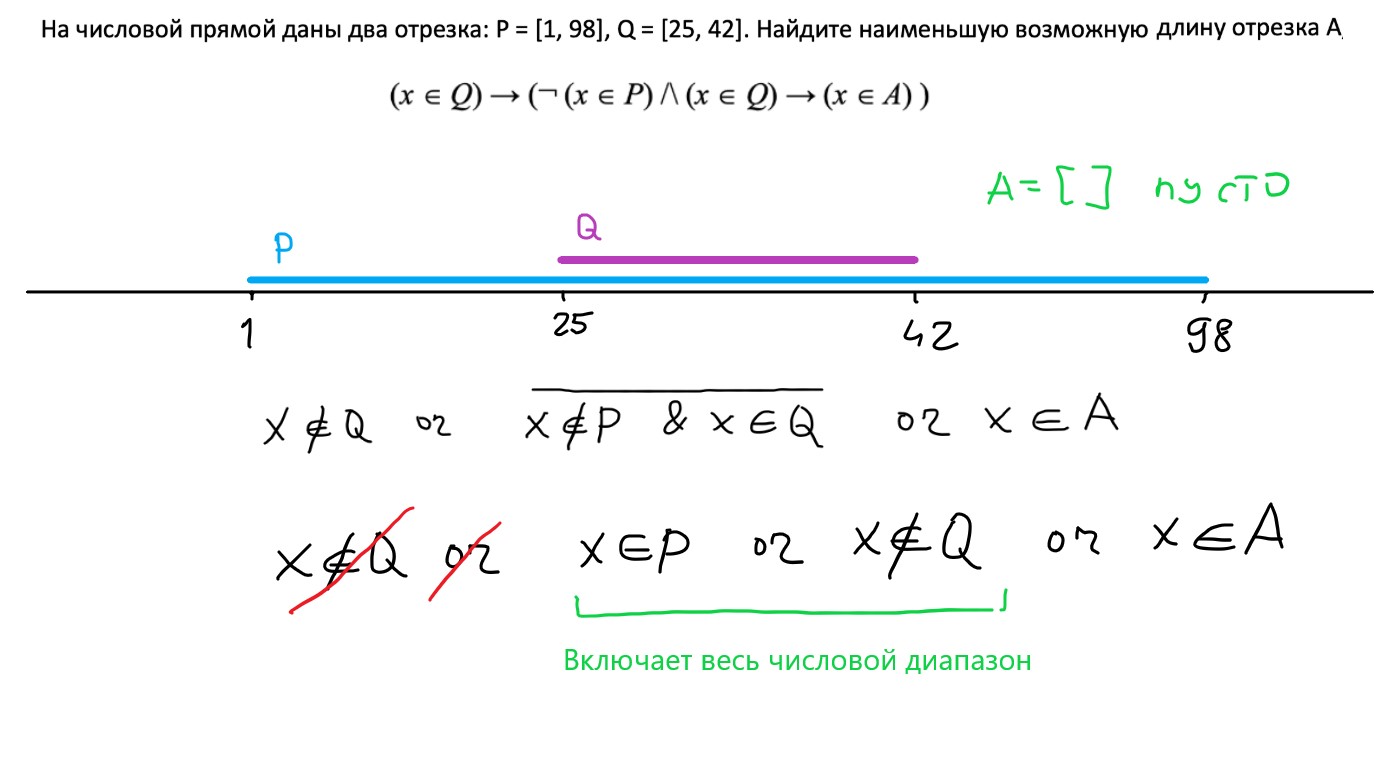 На числовой прямой даны два отрезка: P = [1, 98], Q = [25, 42]. Найдите наименьшую возможную длину отрезка A,
(x ∈ Q) → (¬ (x ∈ P) /\ (x ∈ Q) → (x ∈ A) )
A = [ ] пусто
Q
P
1 25 42 98
x ∉ Q or x ∉ P & x ∈ Q or x ∈ A
x ∉ Q or x ∈ P or x ∉ Q or x ∈ A
Включает весь числовой диапазон